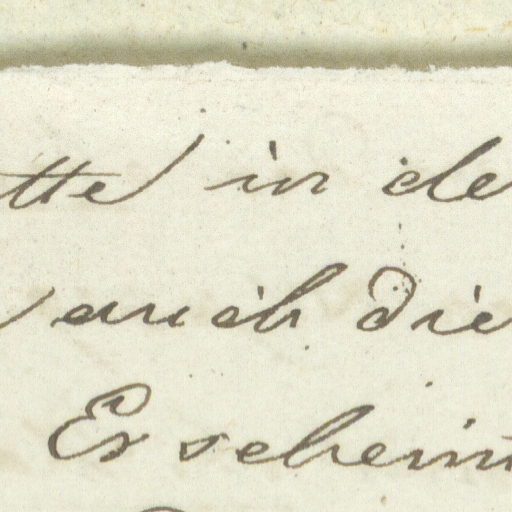 tte in de
auch die
Es schein